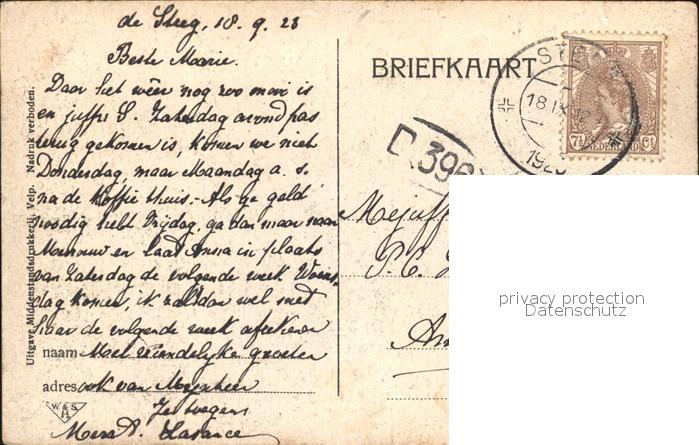 de Steeg, 18. 9. 23
Beste Marie.
Daar het wêer nog zoo mooi is
en juffr. S. Zaterdag avond pas
terug gekomen is, komen we niet
Donderdag, maar Maandag a. s.
na de Koffie thuis. Als ge geld
noodig hebt Vrijdag, ga dan maar naar
Mevrouw en laat Anna in plaats
van Zaterdag de volgende week Woens-
dag komen, ik zal dan wel met
haar de volgende week afrekenen
naam Met vriendelijke groeten
adres ook van Mijnheer
Mevr.
BRIEFKAART
STEEG
18 IX
1923
7½ Ct
NEDERLAND
D 396
Mejuff
P. C.
Uitgave Middenstandsdrukkerij, Velp. Nadruk verboden.
W & S
H
privacy protection
Datenschutz